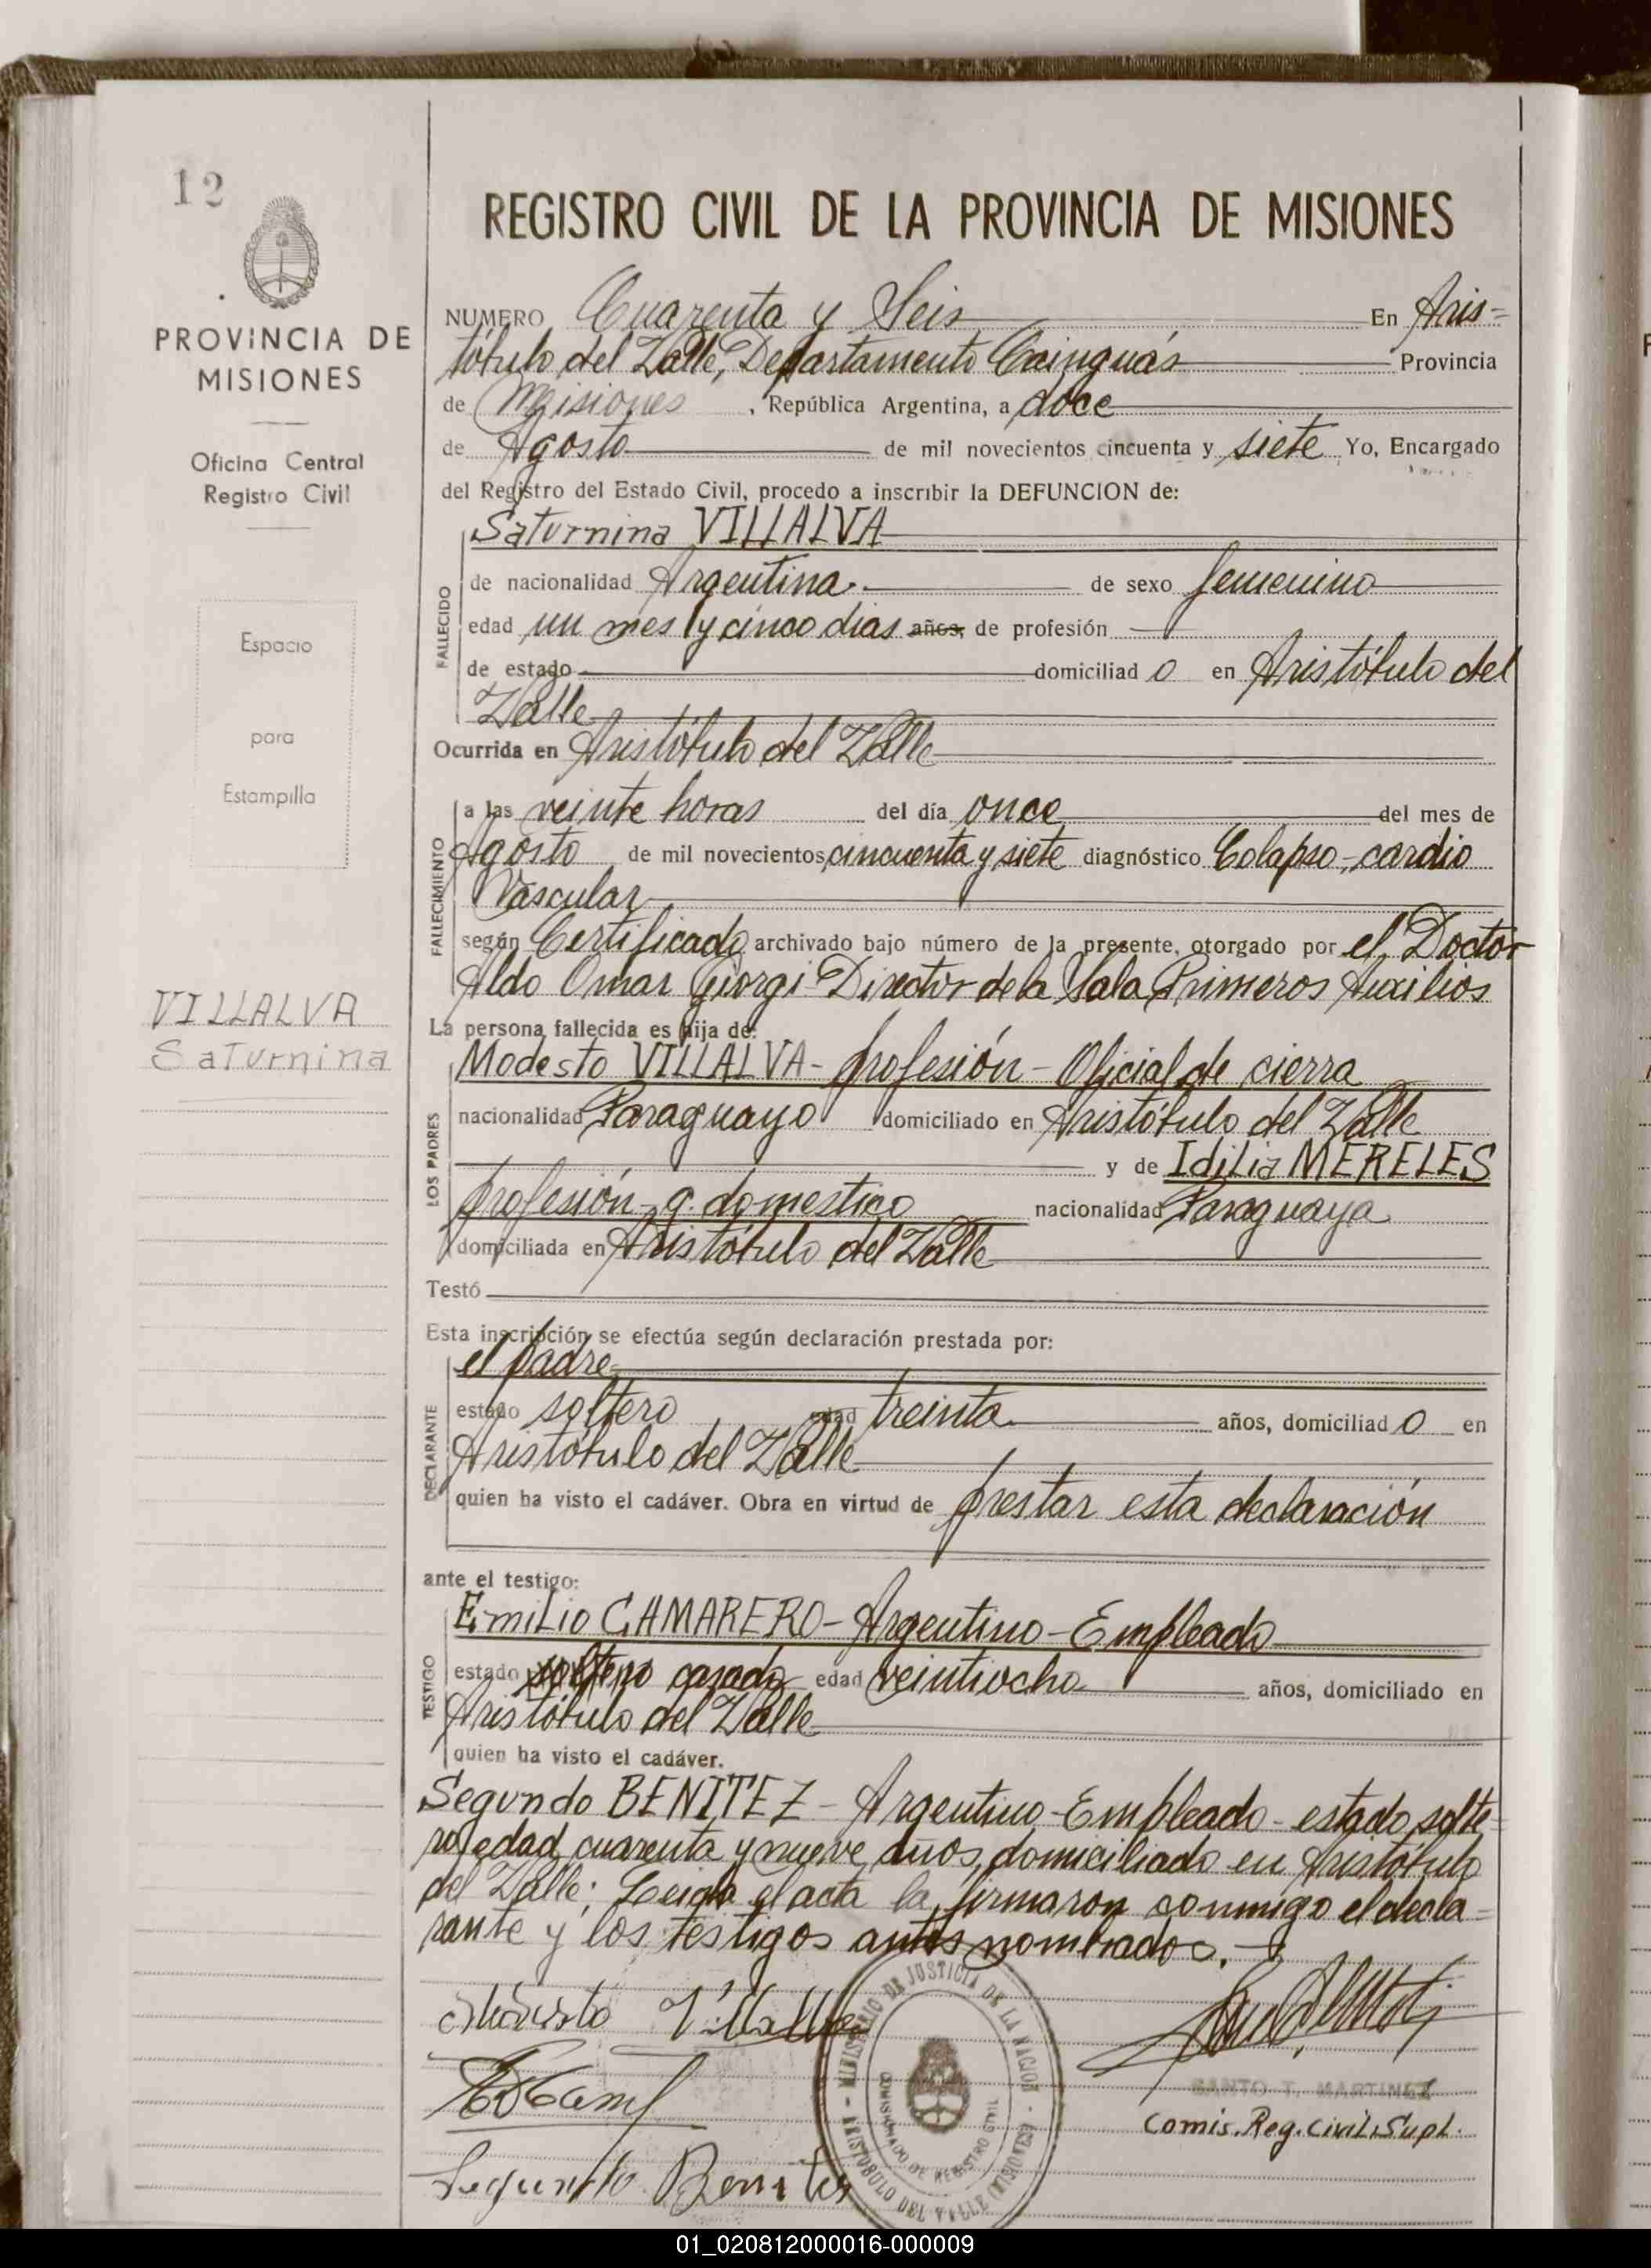 12
PROVINCIA DE
MISIONES
Oficina Central
Registro Civil
Espacio
para
Estampilla
VILLALVA
Saturnina
REGISTRO CIVIL DE LA PROVINCIA DE MISIONES
NUMERO Cuarenta y Seis En Aris=
tóbulo del Valle, Departamento Cainguás Provincia
de Misiones, República Argentina, a doce
de Agosto de mil novecientos cincuenta y siete Yo, Encargado
del Registro del Estado Civil, procedo a inscribir la DEFUNCION de:
FALLECIDO
Saturnina VILLALVA
de nacionalidad Argentina.- de sexo femenino
edad un mes y cinco dias años, de profesión —
de estado domiciliad o en Aristóbulo del
Valle
Ocurrida en Aristóbulo del Valle
FALLECIMIENTO
a las veinte horas del día once del mes de
Agosto de mil novecientos cincuenta y siete diagnóstico Colapso-cardio
Vascular
según Certificado archivado bajo número de la presente, otorgado por el Doctor
Aldo Omar Giorgi-Director de la Sala Primeros Auxilios
La persona fallecida es hija de:
LOS PADRES
Modesto VILLALVA- profesión - Oficial de cierra
nacionalidad Paraguayo domiciliado en Aristóbulo del Valle
y de Idilia MERELES
profesión-q. domestico nacionalidad Paraguaya
domiciliada en Aristóbulo del Valle
Testó
Esta inscripción se efectúa según declaración prestada por:
DECLARANTE
el padre
estado soltero edad treinta años, domiciliad o en
Aristóbulo del Valle
quien ha visto el cadáver. Obra en virtud de prestar esta declaración
ante el testigo:
TESTIGO
Emilio CAMARERO-Argentino-Empleado
estado soltero casado edad veintiocho años, domiciliado en
Aristóbulo del Valle
quien ha visto el cadáver.
Segundo BENITEZ - Argentino-Empleado- estado solte-
ro, edad cuarenta y nueve años, domiciliado en Aristóbulo
del Valle; Leida el acta la firmaron conmigo el decla-
rante y los testigos antes nombrados.-
Modesto Villalba
Segundo Benitez
MINISTERIO DE JUSTICIA DE LA NACION - ARISTOBULO DEL VALLE (MISIONES)
COMISIONADO DE REGISTRO CIVIL
SANTO T. MARTINEZ
Comis. Reg. Civil. Supl.
01_020812000016-000009